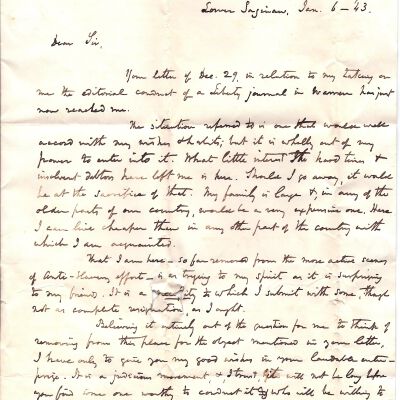 Lower Saginaw, Jan. 6 - 43.
Dear Sir,
Your letter of Dec. 29, in relation to my taking on
me the editorial conduct of a Liberty journal in Warren has just
now reached me.
The situation referred to is one that would well
accord with my wishes & habits; but it is wholly out of my
power to enter into it. What little interest the hard times &
insolvent debtors have left me is here. Should I go away, it would
be at the sacrifice of that. My family is large & in any of the
older parts of our country, would be a very expensive one. Here
I can live cheaper than in any other part of the country with
which I am acquainted.
That I am here - so far removed from the more active scenes
of Anti-Slavery effort - is as trying to my spirit as it is surprising
to my friend. It is a necessity to which I submit with some, though
not as complete resignation, as I ought.
Believing it entirely out of the question for me to think of
removing from this place for the object mentioned in your letter,
I have only to give you my good wishes in your laudable enter-
prize. It is a judicious movement & I trust, it will not be long before
you find some one worthy to conduct it & who will be willing to